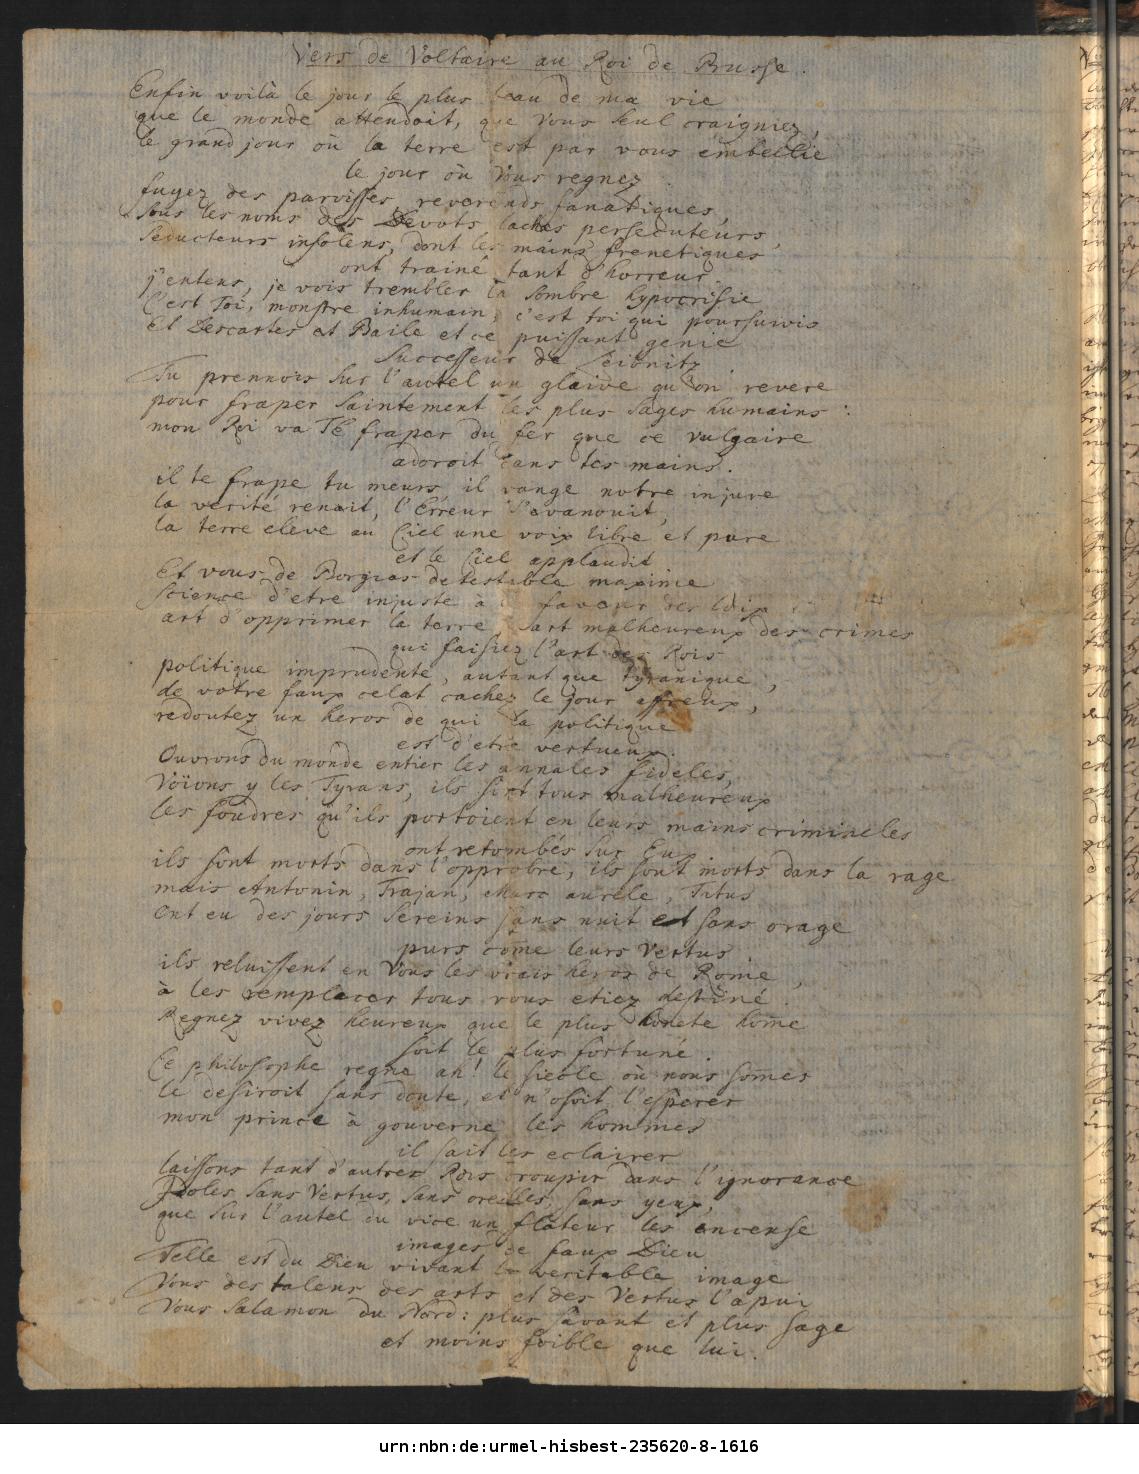 Vers de Voltaire au Roi de Prusse.
Enfin voilà le jour le plus beau de ma vie
que le monde attendoit, que vous seul craigniez,
le grand jour où la terre est par vous embellie
le jour où Vous regnez.
fuyez des parvisses, reverends fanatiques,
sous les noms des Devots laches persecuteurs,
seducteurs insolens, dont les mains frenetiques
ont trainé tant d'horreur
j'entens, je vois trembler la sombre hypocrisie
C'est Toi, monstre inhumain, c'est toi qui poursuivis
Et Descartes et Baile et ce puissant genie
Successeur de Leibnitz.
Tu prennois sur l'autel un glaive qu'on revere
pour fraper saintement les plus sages humains:
mon Roi va Te fraper du fer que ce vulgaire
adoroit dans tes mains.
il te frape tu meurs il vange notre injure
la verité renait, l'Erreur s'evanouit,
la terre eleve au Ciel une voix libre et pure
et le Ciel applaudit
Et vous de Borgias detestable maxime
science d'etre injuste à la faveur des loix
art d'opprimer la terre, art malheureux des crimes
qui faisiez l'art des Rois
politique imprudente, autant que tyranique,
de votre faux eclat cachez le jour affreux,
redoutez un heros de qui la politique
est d'etre vertueux.
Ouvrons du monde entier les annales fideles,
Voïons y les Tyrans, ils sont tous malheureux
les foudres qu'ils portoient en leurs mains criminelles
ont retombés sur Eux
ils sont morts dans l'opprobre, ils sont morts dans la rage
mais Antonin, Trajan, Marc aurele, Titus
ont eu des jours sereins sans nuit et sans orage
purs come leurs vertus.
ils reluissent en Vous les vrais heros de Rome,
à les remplacer tous vous etiez destiné.
Regnez vivez heureux que le plus honete home
soit le plus fortuné.
Ce philosophe regne ah! le siecle où nous somes
le desiroit sans doute, et n'osoit l'esperer
mon prince à gouverné les hommes
il sait les eclairer
laissons tant d'autres Rois croupir dans l'ignorance
Idoles sans Vertus, sans oreilles, sans yeux,
que sur l'autel du vice un flateur les encense
images de faux Dieu
Telle est du Dieu vivant la veritable image
Vous des talens des arts et des Vertus l'apui
Vous Salamon du Nord: plus savant et plus sage
et moins foible que lui.
urn:nbn:de:urmel-hisbest-235620-8-1616